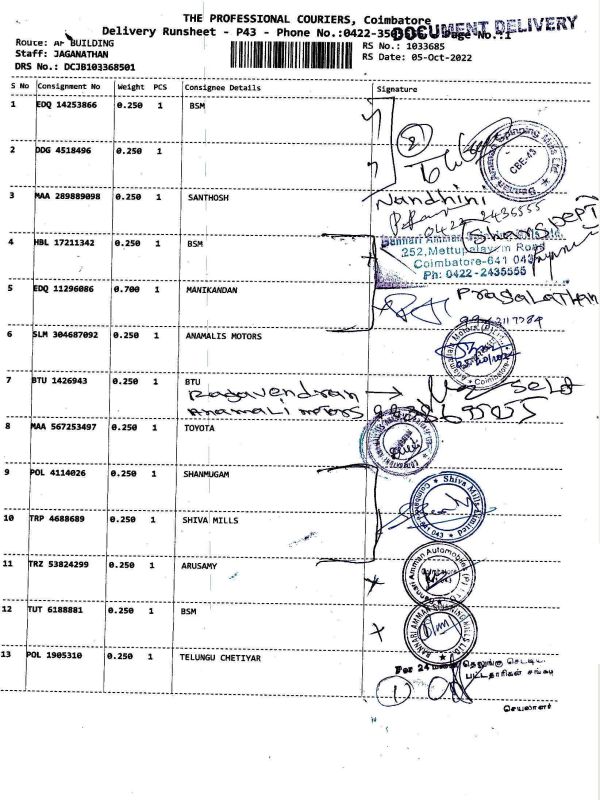 THE PROFESSIONAL COURIERS, Coimbatore
Delivery Runsheet - P43 - Phone No.:0422-35 Page No.:1
DOCUMENT DELIVERY
Route: AP BUILDING
RS No.: 1033685
Staff: JAGANATHAN
RS Date: 05-Oct-2022
DRS No.: DCJB103368501
S No Consignment No Weight PCS Consignee Details Signature
1 EDQ 14253866 0.250 1 BSM
2 DDG 4518496 0.250 1
Bannari Amman Spinning Mills Ltd
CBE-43
3 MAA 289889098 0.250 1 SANTHOSH
Nandhini
0422 2436555
Shares DEPT
4 HBL 17211342 0.250 1 BSM
Bannari Amman Spinning Mills Ltd.
252, Mettupalayam Road
Coimbatore-641 043
Ph: 0422-2435555
5 EDQ 11296086 0.700 1 MANIKANDAN
6 SLM 304687092 0.250 1 ANAMALIS MOTORS
7 BTU 1426943 0.250 1 BTU
Ragavendran → Self
Anamali motors
8 MAA 567253497 0.250 1 TOYOTA
9 POL 4114026 0.250 1 SHANMUGAM
10 TRP 4688689 0.250 1 SHIVA MILLS
11 TRZ 53824299 0.250 1 ARUSAMY
Bannari Amman Automobiles (P)
12 TUT 6188881 0.250 1 BSM
BANNARI AMMAN SPINNING MILLS LTD
13 POL 1905310 0.250 1 TELUNGU CHETIYAR
For 24 மனை தெலுங்கு செட்டி
பட்டதாரிகள் சங்கம்
1
செயலாளர்